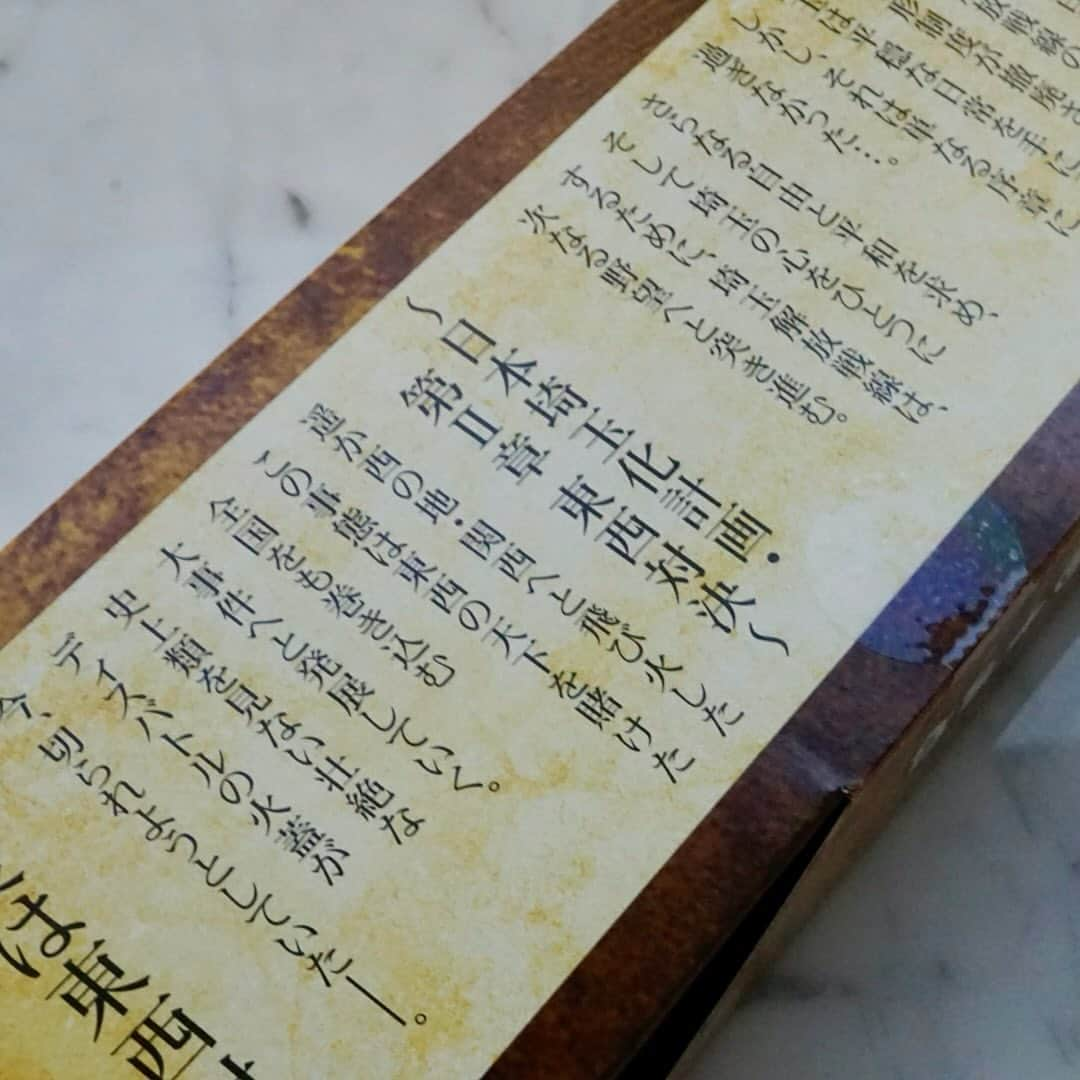 放戦線の
形制度が撤廃さ
は平穏な日常を手に
しかし、それは単なる序章に
過ぎなかった…。
さらなる自由と平和を求め、
そして埼玉の心をひとつに
するために、埼玉解放戦線は、
次なる野望へと突き進む。
〜日本埼玉化計画・
第Ⅱ章 東西対決〜
遥か西の地・関西へと飛び火した
この事態は東西の天下を賭けた
全国をも巻き込む
大事件へと発展していく。
史上類を見ない壮絶な
ディスバトルの火蓋が
今、切られようとしていたー。
は東西